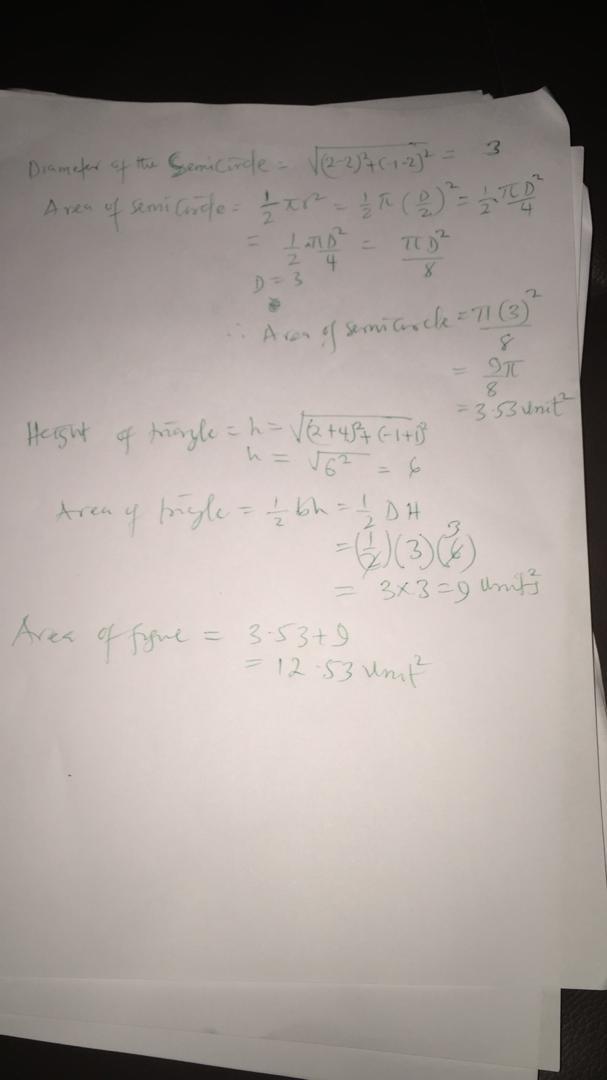 Diameter of the Semicircle = √(2-2)²+(-1-2)² = 3
Area of semicircle = 1/2 πr² = 1/2 π (D/2)² = 1/2 · πD²/4
= 1/2 · πD²/4 = πD²/8
D = 3
∴ Area of semicircle = π(3)²/8
= 9π/8
= 3.53 unit²
Height of triangle = h = √(2+4)²+(-1+1)²
h = √6² = 6
Area of trigle = 1/2 bh = 1/2 DH
= (1/2)(3)(6) 3
= 3×3 = 9 units²
Area of figure = 3.53+9
= 12.53 unit²